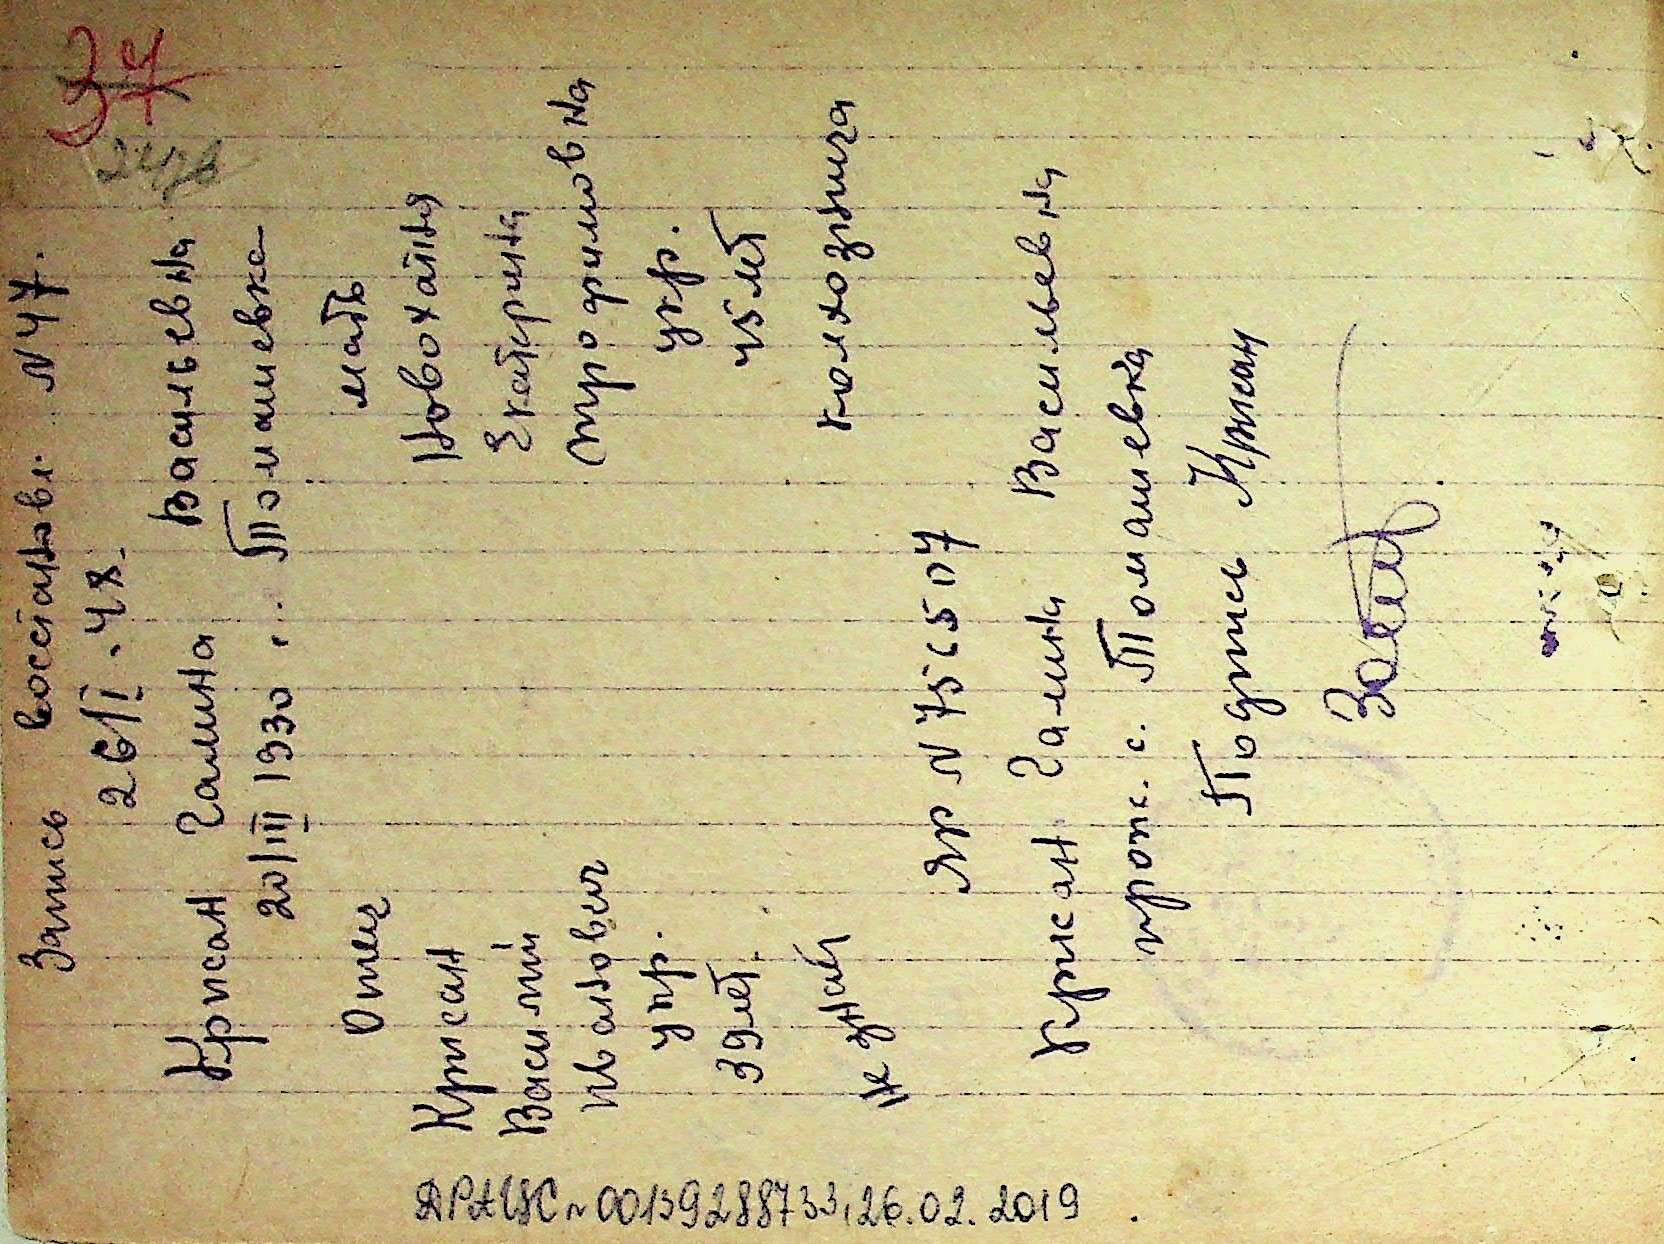 34
Запись восстановл. N 47.
26/I. 48.
Крисан Галина Васильевна
20/III 1930, с. Томашевка
Отец мать
Крисан Новохатня
Василий Екатерина
Иванович Трофимовна
укр. укр.
39 лет 45 лет
не знает колхозница
ЯР N 756507
Крисан Галина Васильевна
прож. с. Томашевка
Подпись Крисан
ДРАЦС N 00139288733, 26.02.2019.